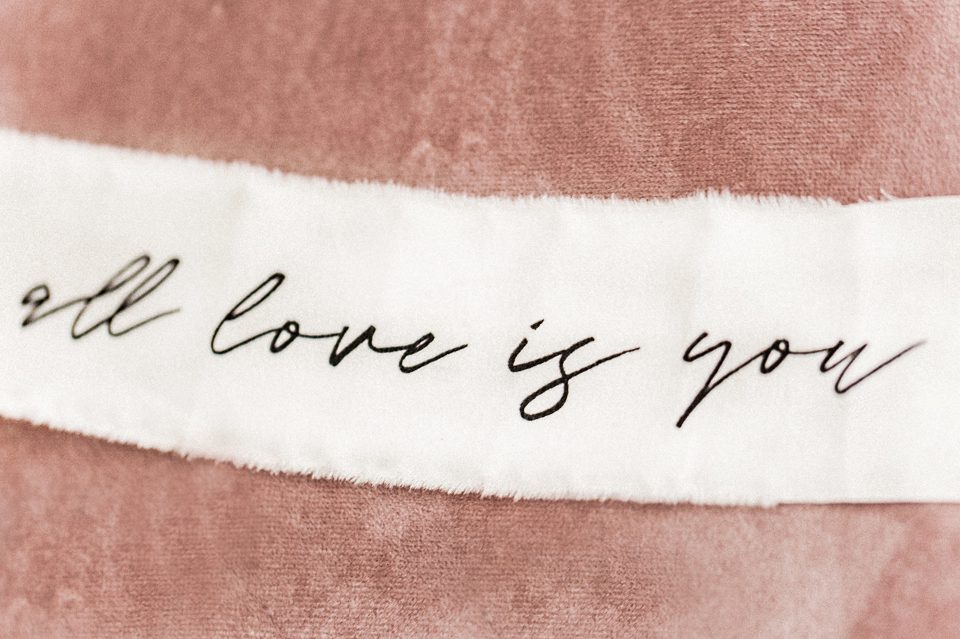 all love is you